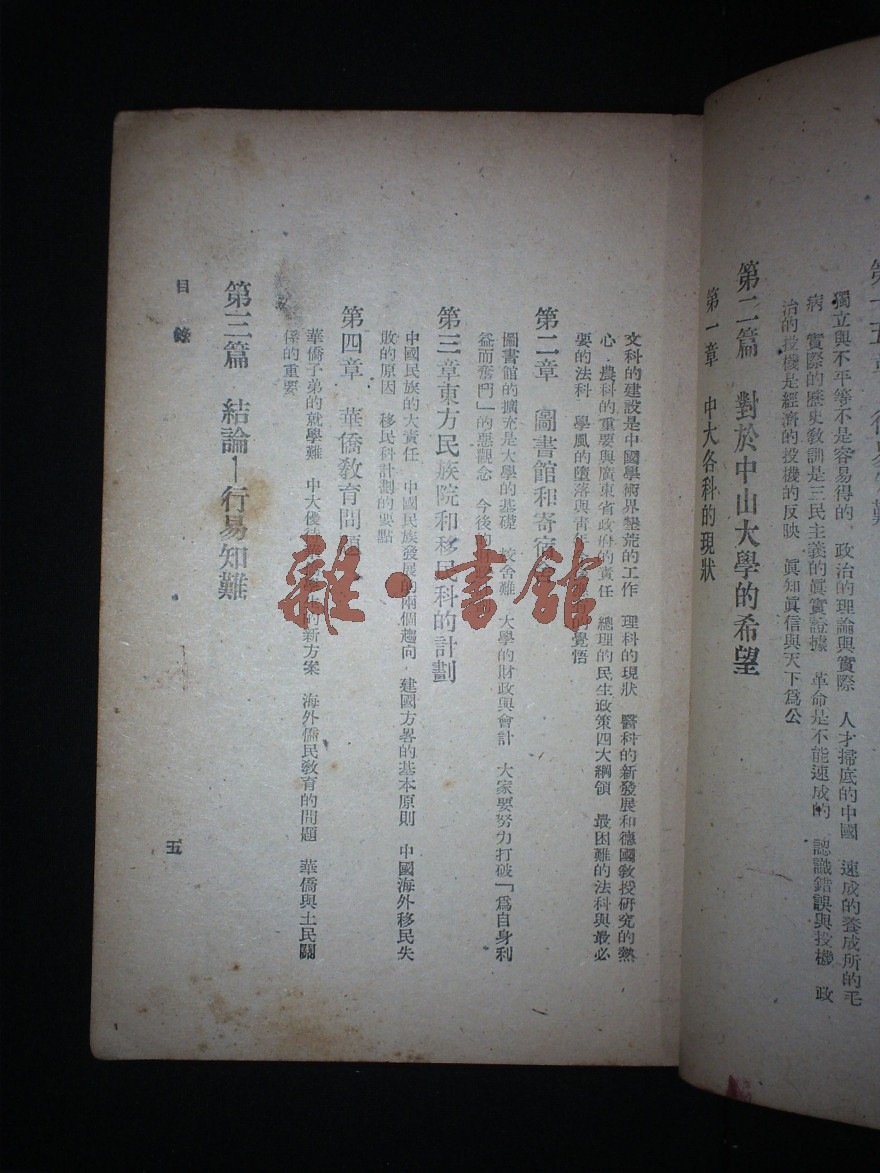 第十五章 行易知難
獨立與不平等不是容易得的 政治的理論與實際 人才掃底的中國 速成的養成所的毛
病 實際的歷史敎訓是三民主義的眞實證據 革命是不能速成的 認識錯誤與投機 政
治的投機是經濟的投機的反映 眞知眞信與天下爲公
第二篇 對於中山大學的希望
第一章 中大各科的現狀
文科的建設是中國學術界墾荒的工作 理科的現狀 醫科的新發展和德國敎授研究的熱
心 農科的重要與廣東省政府的責任 總理的民生政策四大綱領 最困難的法科與最必
要的法科 學風的墮落與靑年 的覺悟
第二章 圖書館和寄宿舍
圖書館的擴充是大學的基礎 校舍難 大學的財政與會計 大家要努力打破「爲自身利
益而奮鬥」的惡觀念 今後的
第三章東方民族院和移民科的計劃
中國民族的大責任 中國民族發展的兩個趨向 建國方畧的基本原則 中國海外移民失
敗的原因 移民科計劃的要點
第四章 華僑敎育問題
華僑子弟的就學難 中大優待 的新方案 海外僑民敎育的問題 華僑與土民關
係的重要
第三篇 結論—行易知難
目錄
五
雜·書館